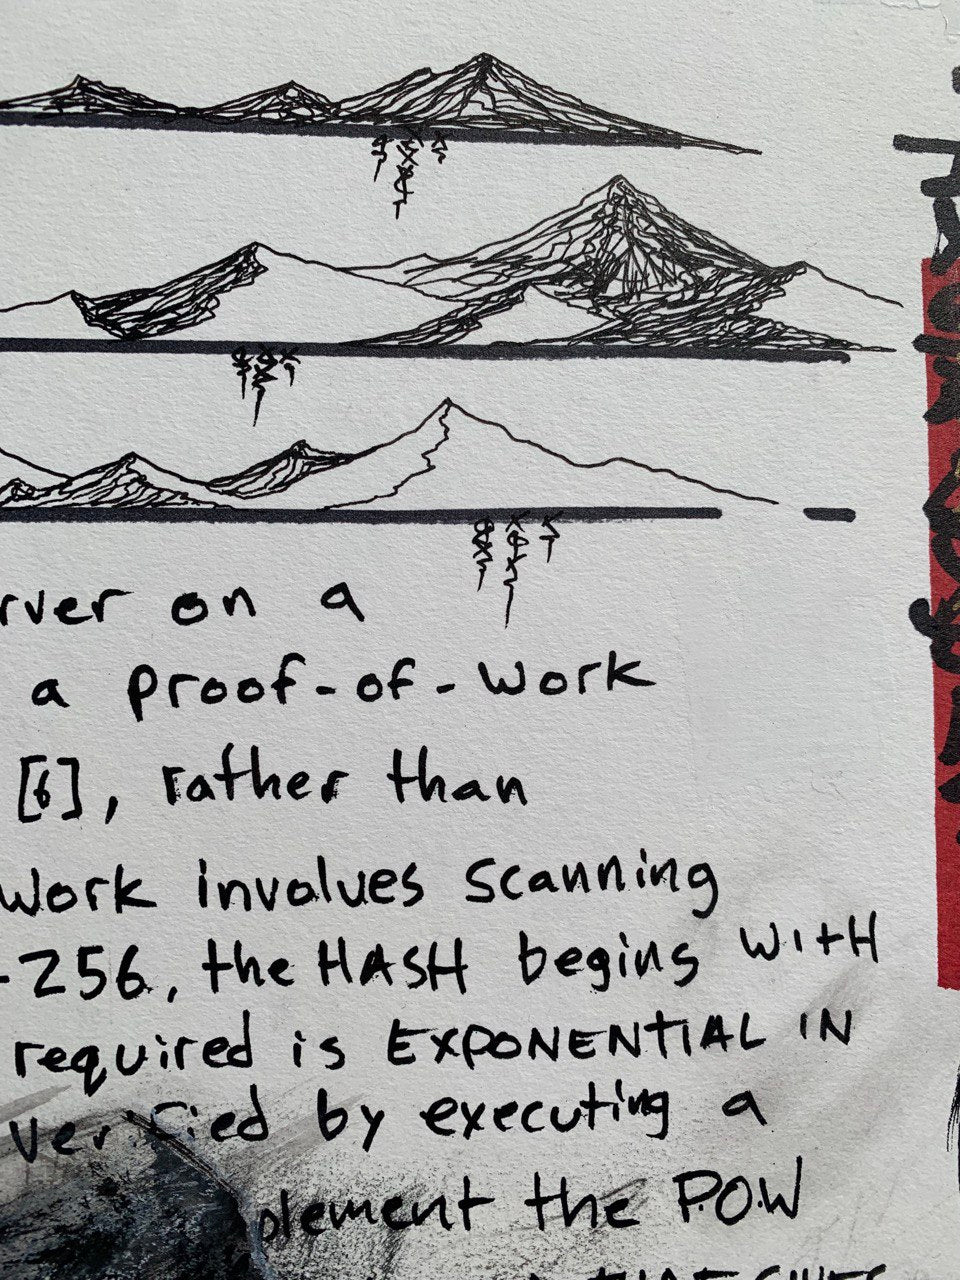 rver on a
a proof-of-work
[6], rather than
work involves scanning
-256, the HASH begins WITH
required is EXPONENTIAL IN
by executing a
plement the P.O.W